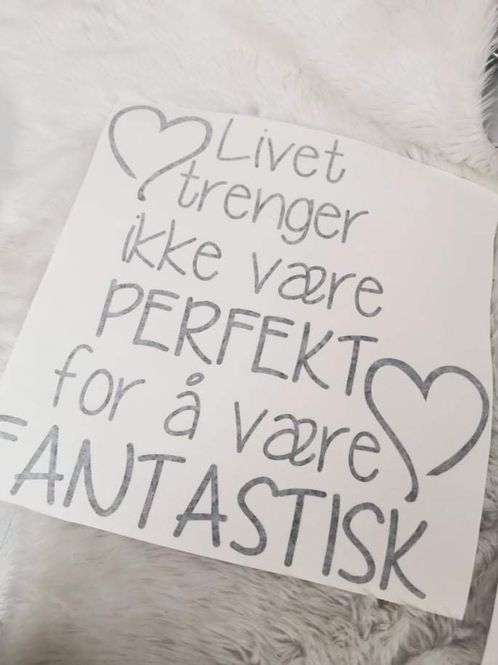 Livet
trenger
ikke være
PERFEKT
for å være
FANTASTISK